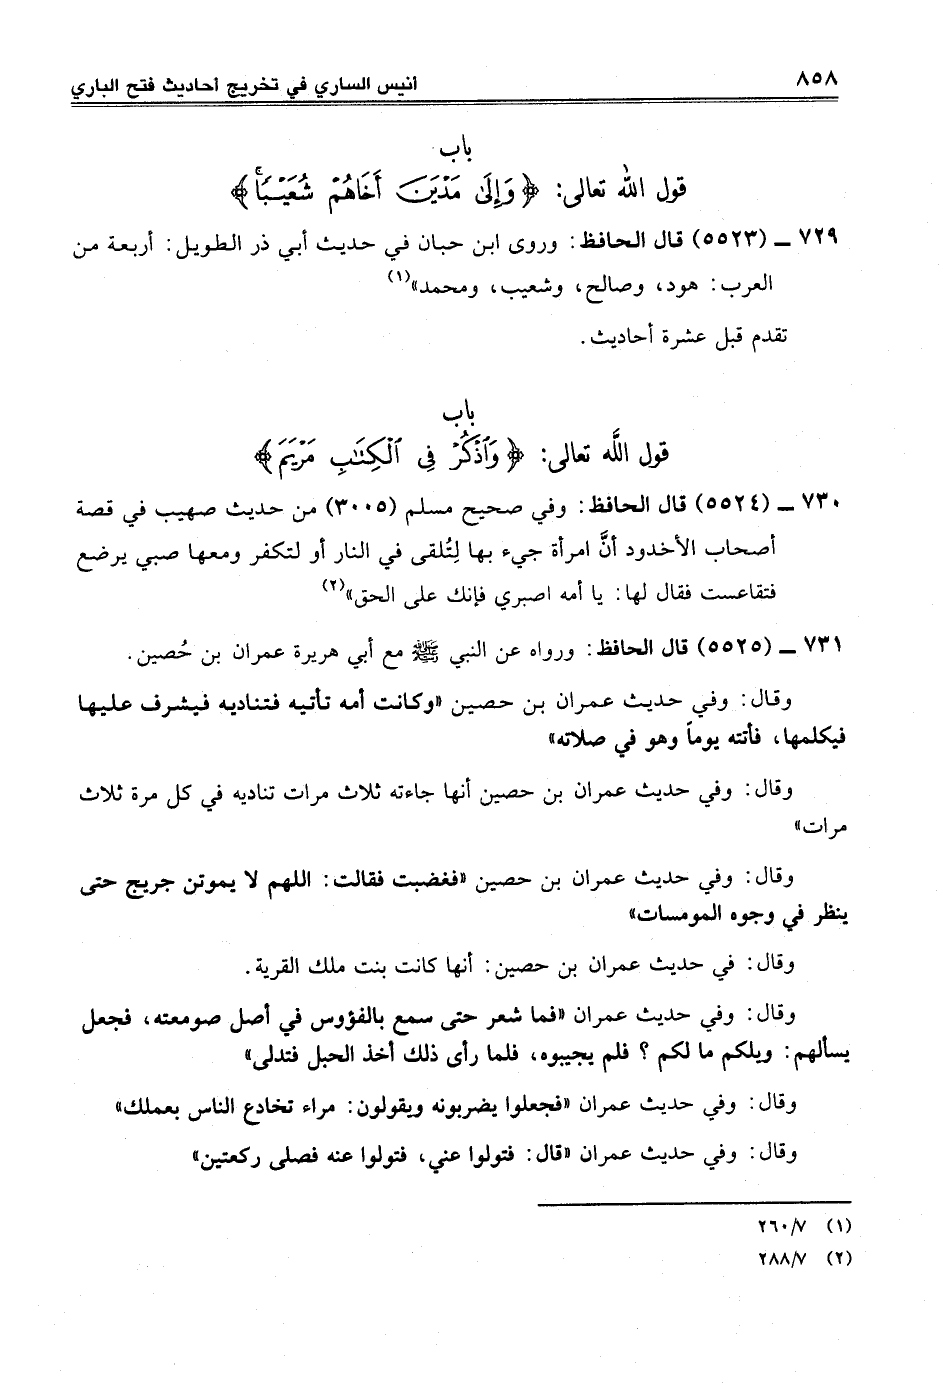 ٨٥٨
أنيس الساري في تخريج أحاديث فتح الباري
باب
قول الله تعالى: ﴿وَإِلَىٰ مَدْيَنَ أَخَاهُمْ شُعَيْبًا﴾
٧٢٩ ـ (٥٥٢٣) قال الحافظ: وروى ابن حبان في حديث أبي ذر الطويل: أربعة من
العرب: هود، وصالح، وشعيب، ومحمد»(١)
تقدم قبل عشرة أحاديث.
باب
قول اللَّه تعالى: ﴿وَٱذْكُرْ فِى ٱلْكِتَٰبِ مَرْيَمَ﴾
٧٣٠ ـ (٥٥٢٤) قال الحافظ: وفي صحيح مسلم (٣٠٠٥) من حديث صهيب في قصة
أصحاب الأخدود أنَّ امرأة جيء بها لِتُلقى في النار أو لتكفر ومعها صبي يرضع
فتقاعست فقال لها: يا أمه اصبري فإنك على الحق»(٢)
٧٣١ ـ (٥٥٢٥) قال الحافظ: ورواه عن النبي ﷺ مع أبي هريرة عمران بن حُصين.
وقال: وفي حديث عمران بن حصين «وكانت أمه تأتيه فتناديه فيشرف عليها
فيكلمها، فأتته يوماً وهو في صلاته»
وقال: وفي حديث عمران بن حصين أنها جاءته ثلاث مرات تناديه في كل مرة ثلاث
مرات»
وقال: وفي حديث عمران بن حصين «فغضبت فقالت: اللهم لا يموتن جريج حتى
ينظر في وجوه المومسات»
وقال: في حديث عمران بن حصين: أنها كانت بنت ملك القرية.
وقال: وفي حديث عمران «فما شعر حتى سمع بالفؤوس في أصل صومعته، فجعل
يسألهم: ويلكم ما لكم؟ فلم يجيبوه، فلما رأى ذلك أخذ الحبل فتدلى»
وقال: وفي حديث عمران «فجعلوا يضربونه ويقولون: مراء تخادع الناس بعملك»
وقال: وفي حديث عمران «قال: فتولوا عني، فتولوا عنه فصلى ركعتين»
(١) ٢٦٠/٧
(٢) ٢٨٨/٧